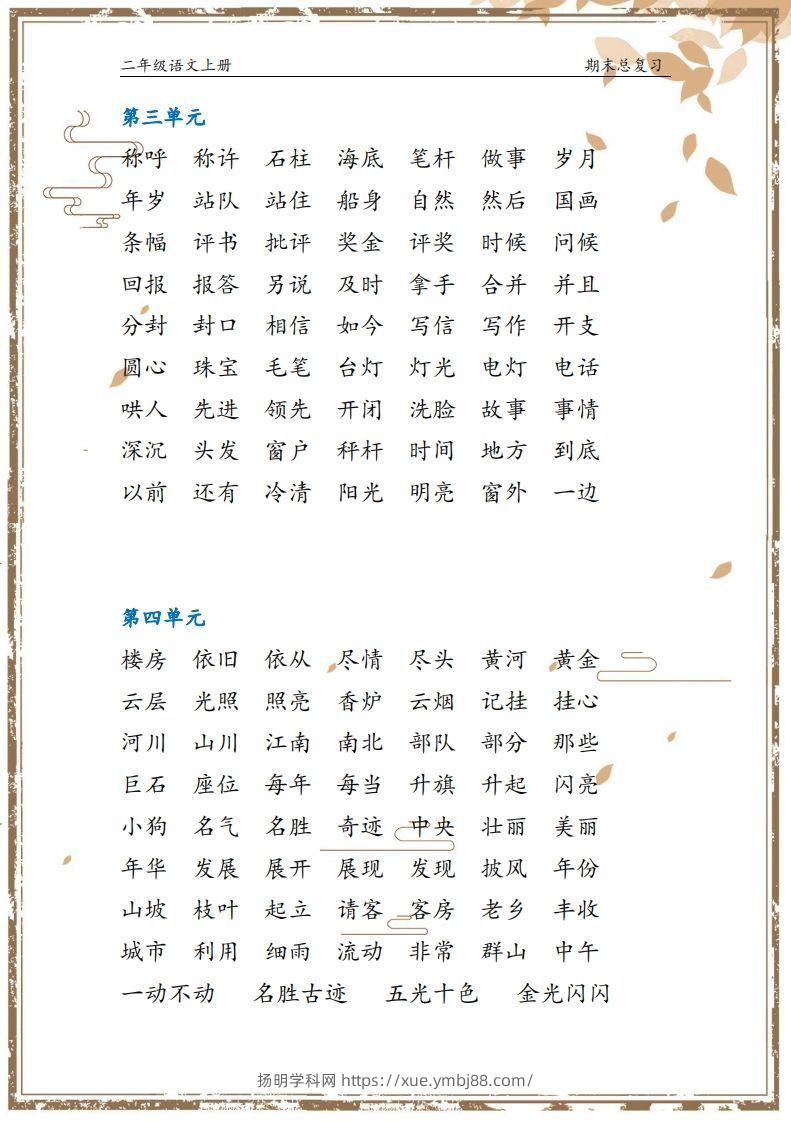 二年级语文上册 期末总复习
第三单元
称呼 称许 石柱 海底 笔杆 做事 岁月
年岁 站队 站住 船身 自然 然后 国画
条幅 评书 批评 奖金 评奖 时候 问候
回报 报答 另说 及时 拿手 合并 并且
分封 封口 相信 如今 写信 写作 开支
圆心 珠宝 毛笔 台灯 灯光 电灯 电话
哄人 先进 领先 开闭 洗脸 故事 事情
深沉 头发 窗户 秤杆 时间 地方 到底
以前 还有 冷清 阳光 明亮 窗外 一边
第四单元
楼房 依旧 依从 尽情 尽头 黄河 黄金
云层 光照 照亮 香炉 云烟 记挂 挂心
河川 山川 江南 南北 部队 部分 那些
巨石 座位 每年 每当 升旗 升起 闪亮
小狗 名气 名胜 奇迹 中央 壮丽 美丽
年华 发展 展开 展现 发现 披风 年份
山坡 枝叶 起立 请客 客房 老乡 丰收
城市 利用 细雨 流动 非常 群山 中午
一动不动 名胜古迹 五光十色 金光闪闪
扬明学科网 https://xue.ymbj88.com/